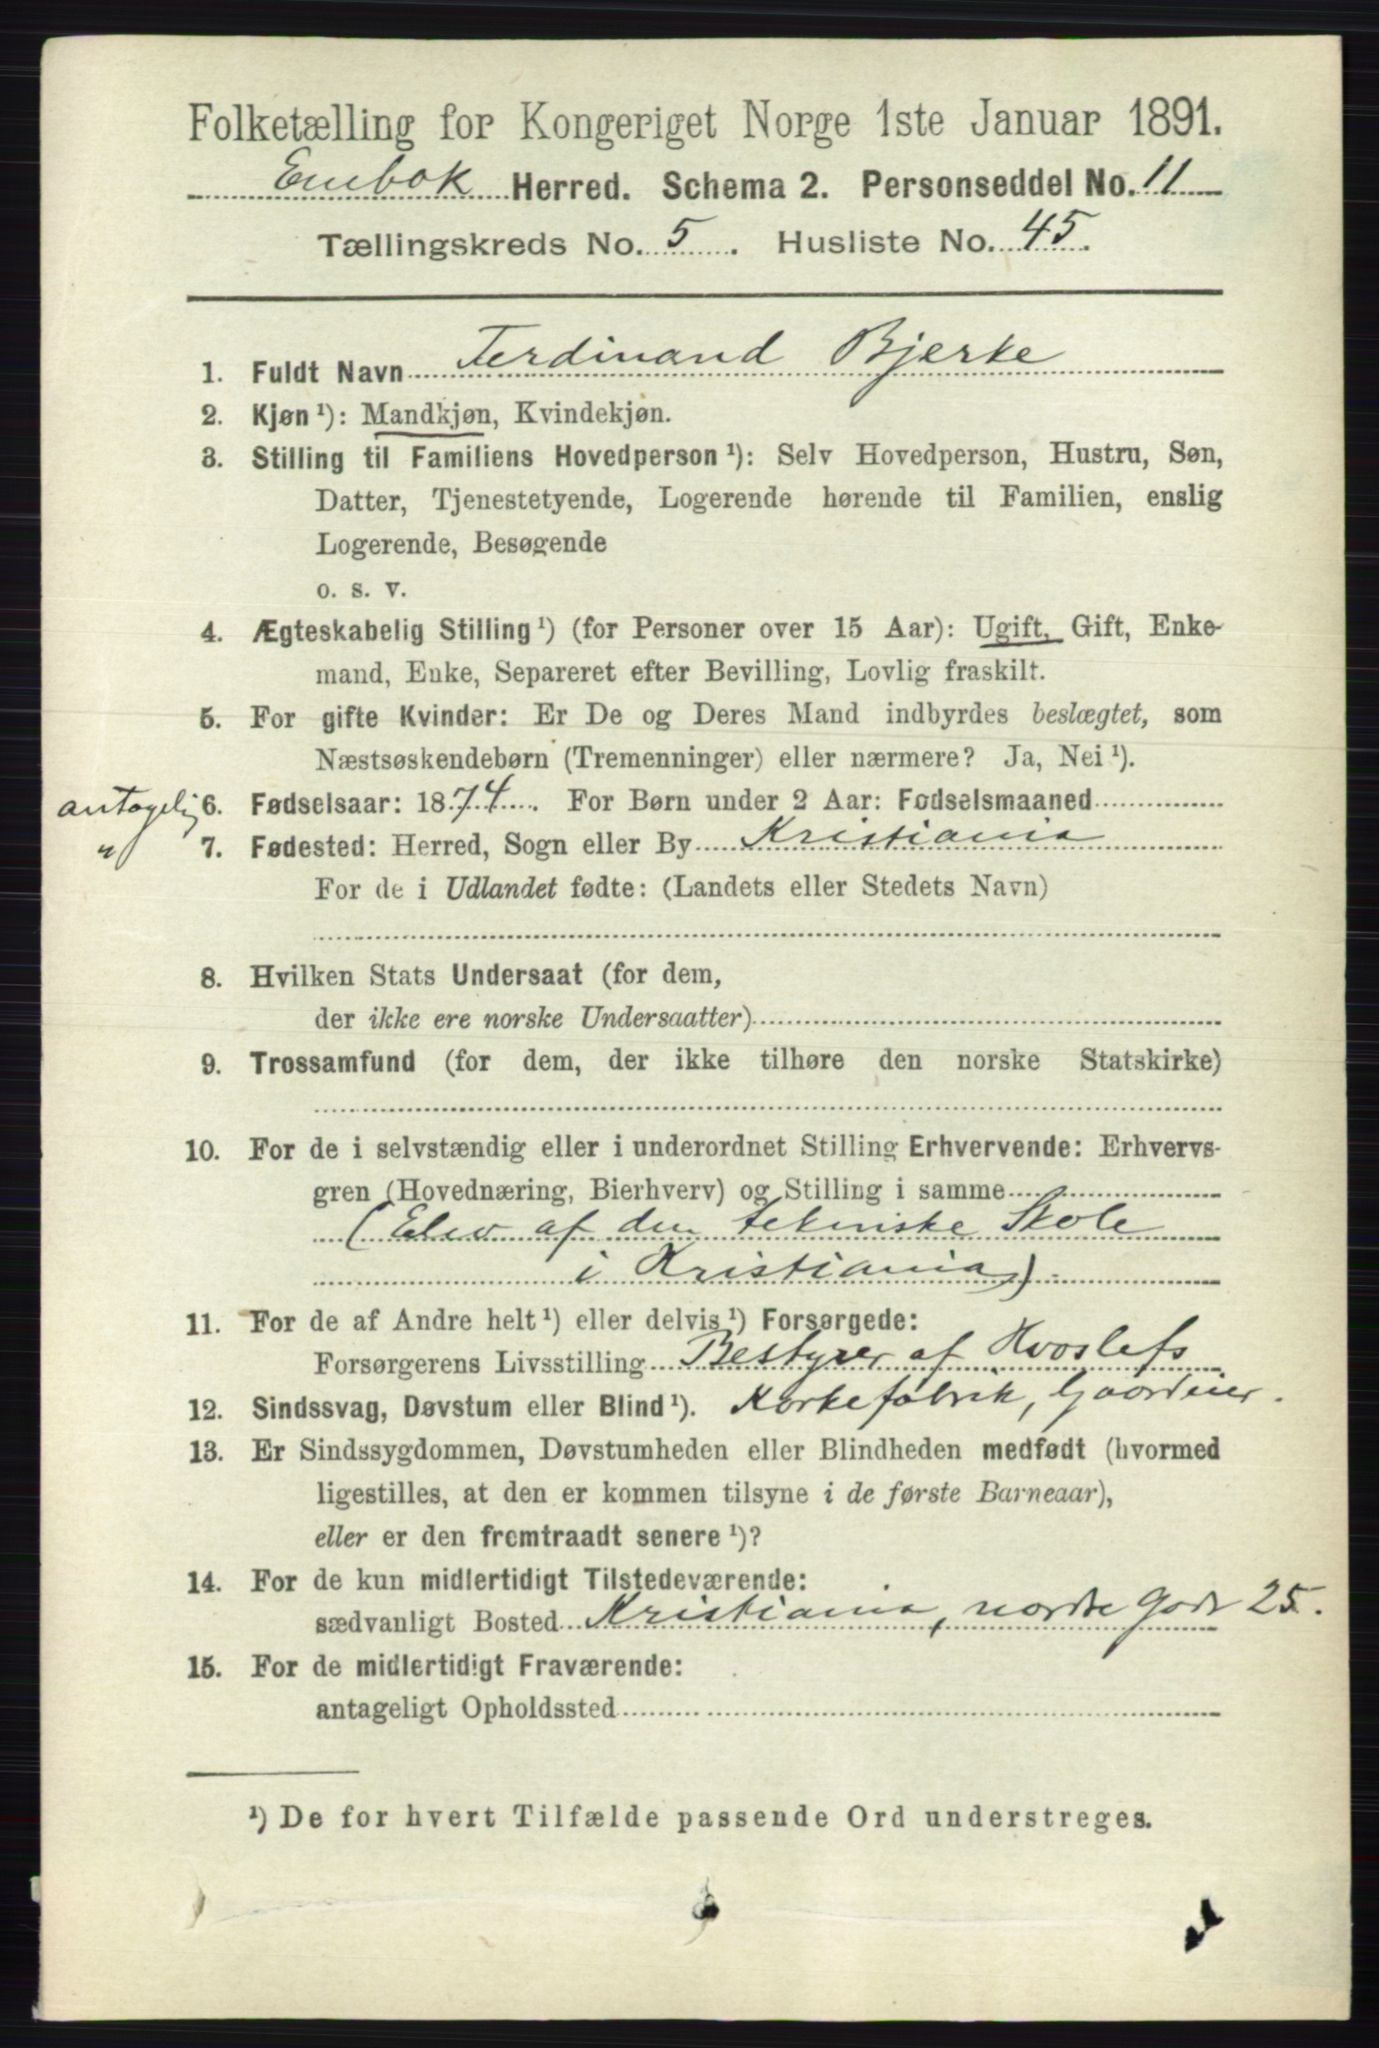 Folketælling for Kongeriget Norge 1ste Januar 1891.
Enebok Herred. Schema 2. Personseddel No. 11
Tællingskreds No. 5. Husliste No. 45.
1. Fuldt Navn Ferdinand Bjerke
2. Kjøn ¹): Mandkjøn, Kvindekjøn.
3. Stilling til Familiens Hovedperson ¹): Selv Hovedperson, Hustru, Søn,
Datter, Tjenestetyende, Logerende hørende til Familien, enslig
Logerende, Besøgende
o. s. v.
4. Ægteskabelig Stilling ¹) (for Personer over 15 Aar): Ugift, Gift, Enke-
mand, Enke, Separeret efter Bevilling, Lovlig fraskilt.
5. For gifte Kvinder: Er De og Deres Mand indbyrdes beslægtet, som
Næstsøskendebørn (Tremenninger) eller nærmere? Ja, Nei ¹).
antagelig 6. Fødselsaar: 1874. For Børn under 2 Aar: Fødselsmaaned
" 7. Fødested: Herred, Sogn eller By Kristiania
For de i Udlandet fødte: (Landets eller Stedets Navn)
8. Hvilken Stats Undersaat (for dem,
der ikke ere norske Undersaatter)
9. Trossamfund (for dem, der ikke tilhøre den norske Statskirke)
10. For de i selvstændig eller i underordnet Stilling Erhvervende: Erhvervs-
gren (Hovednæring, Bierhverv) og Stilling i samme
(Elev af den tekniske Skole
i Kristiania)
11. For de af Andre helt ¹) eller delvis ¹) Forsørgede:
Forsørgerens Livsstilling Bestyrer af Hvoslefs
12. Sindssvag, Døvstum eller Blind ¹). Korkefabrik, Gaardeier.
13. Er Sindssygdommen, Døvstumheden eller Blindheden medfødt (hvormed
ligestilles, at den er kommen tilsyne i de første Barneaar),
eller er den fremtraadt senere ¹)?
14. For de kun midlertidigt Tilstedeværende:
sædvanligt Bosted Kristiania, nordre Gade 25.
15. For de midlertidigt Fraværende:
antageligt Opholdssted
¹) De for hvert Tilfælde passende Ord understreges.